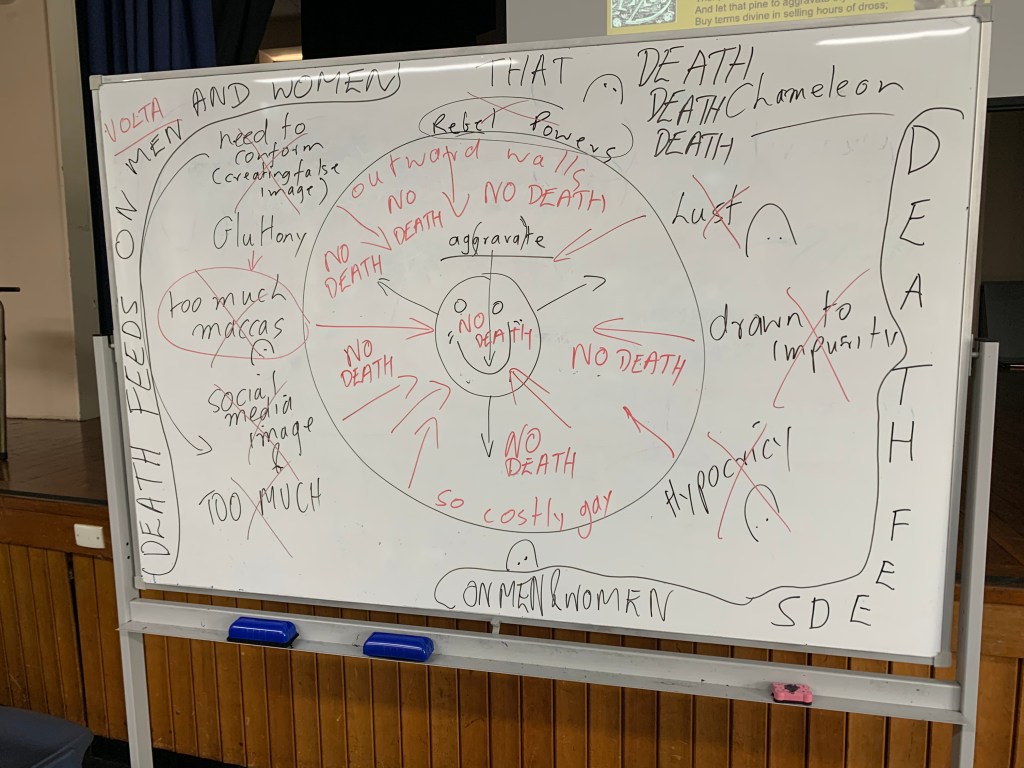 And let that pine to aggravate
Buy terms divine in selling hours of dross;
VOLTA
DEATH FEEDS ON MEN AND WOMEN
THAT
DEATH
DEATH Chameleon
DEATH
Rebel Powers
need to
conform
(creating false
image)
Gluttony
too much
maccas
social
media
image
&
TOO MUCH
outward walls
NO
DEATH
NO DEATH
NO
DEATH
aggravate
NO
DEATH
NO
DEATH
NO DEATH
NO
DEATH
so costly gay
Lust
drawn to
impurity
Hypocricy
DEATH FEE
SDE
ON MEN & WOMEN